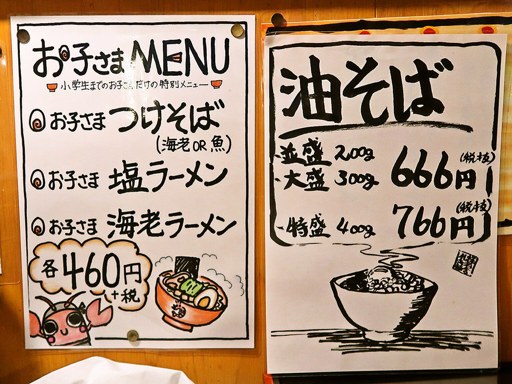 お子さまMENU
小学生までのお子さんだけの特別メニュー
お子さま つけそば
(海老OR魚)
お子さま 塩ラーメン
お子さま 海老ラーメン
各460円
+税
油そば
・並盛 200g
・大盛 300g
666円(税抜)
・特盛 400g 766円(税抜)